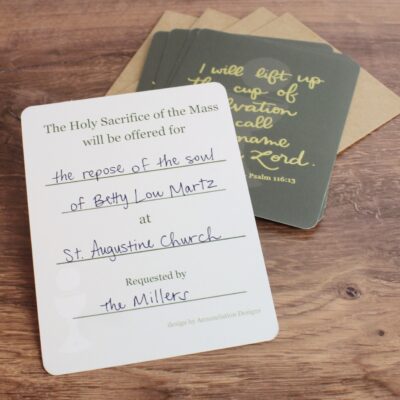 The Holy Sacrifice of the Mass
will be offered for
the repose of the soul
of Betty Lou Martz
at
St. Augustine Church
Requested by
The Millers
design by Annunciation Designs
I will lift up
the cup of
salvation
call
name
Lord.
Psalm 116:13